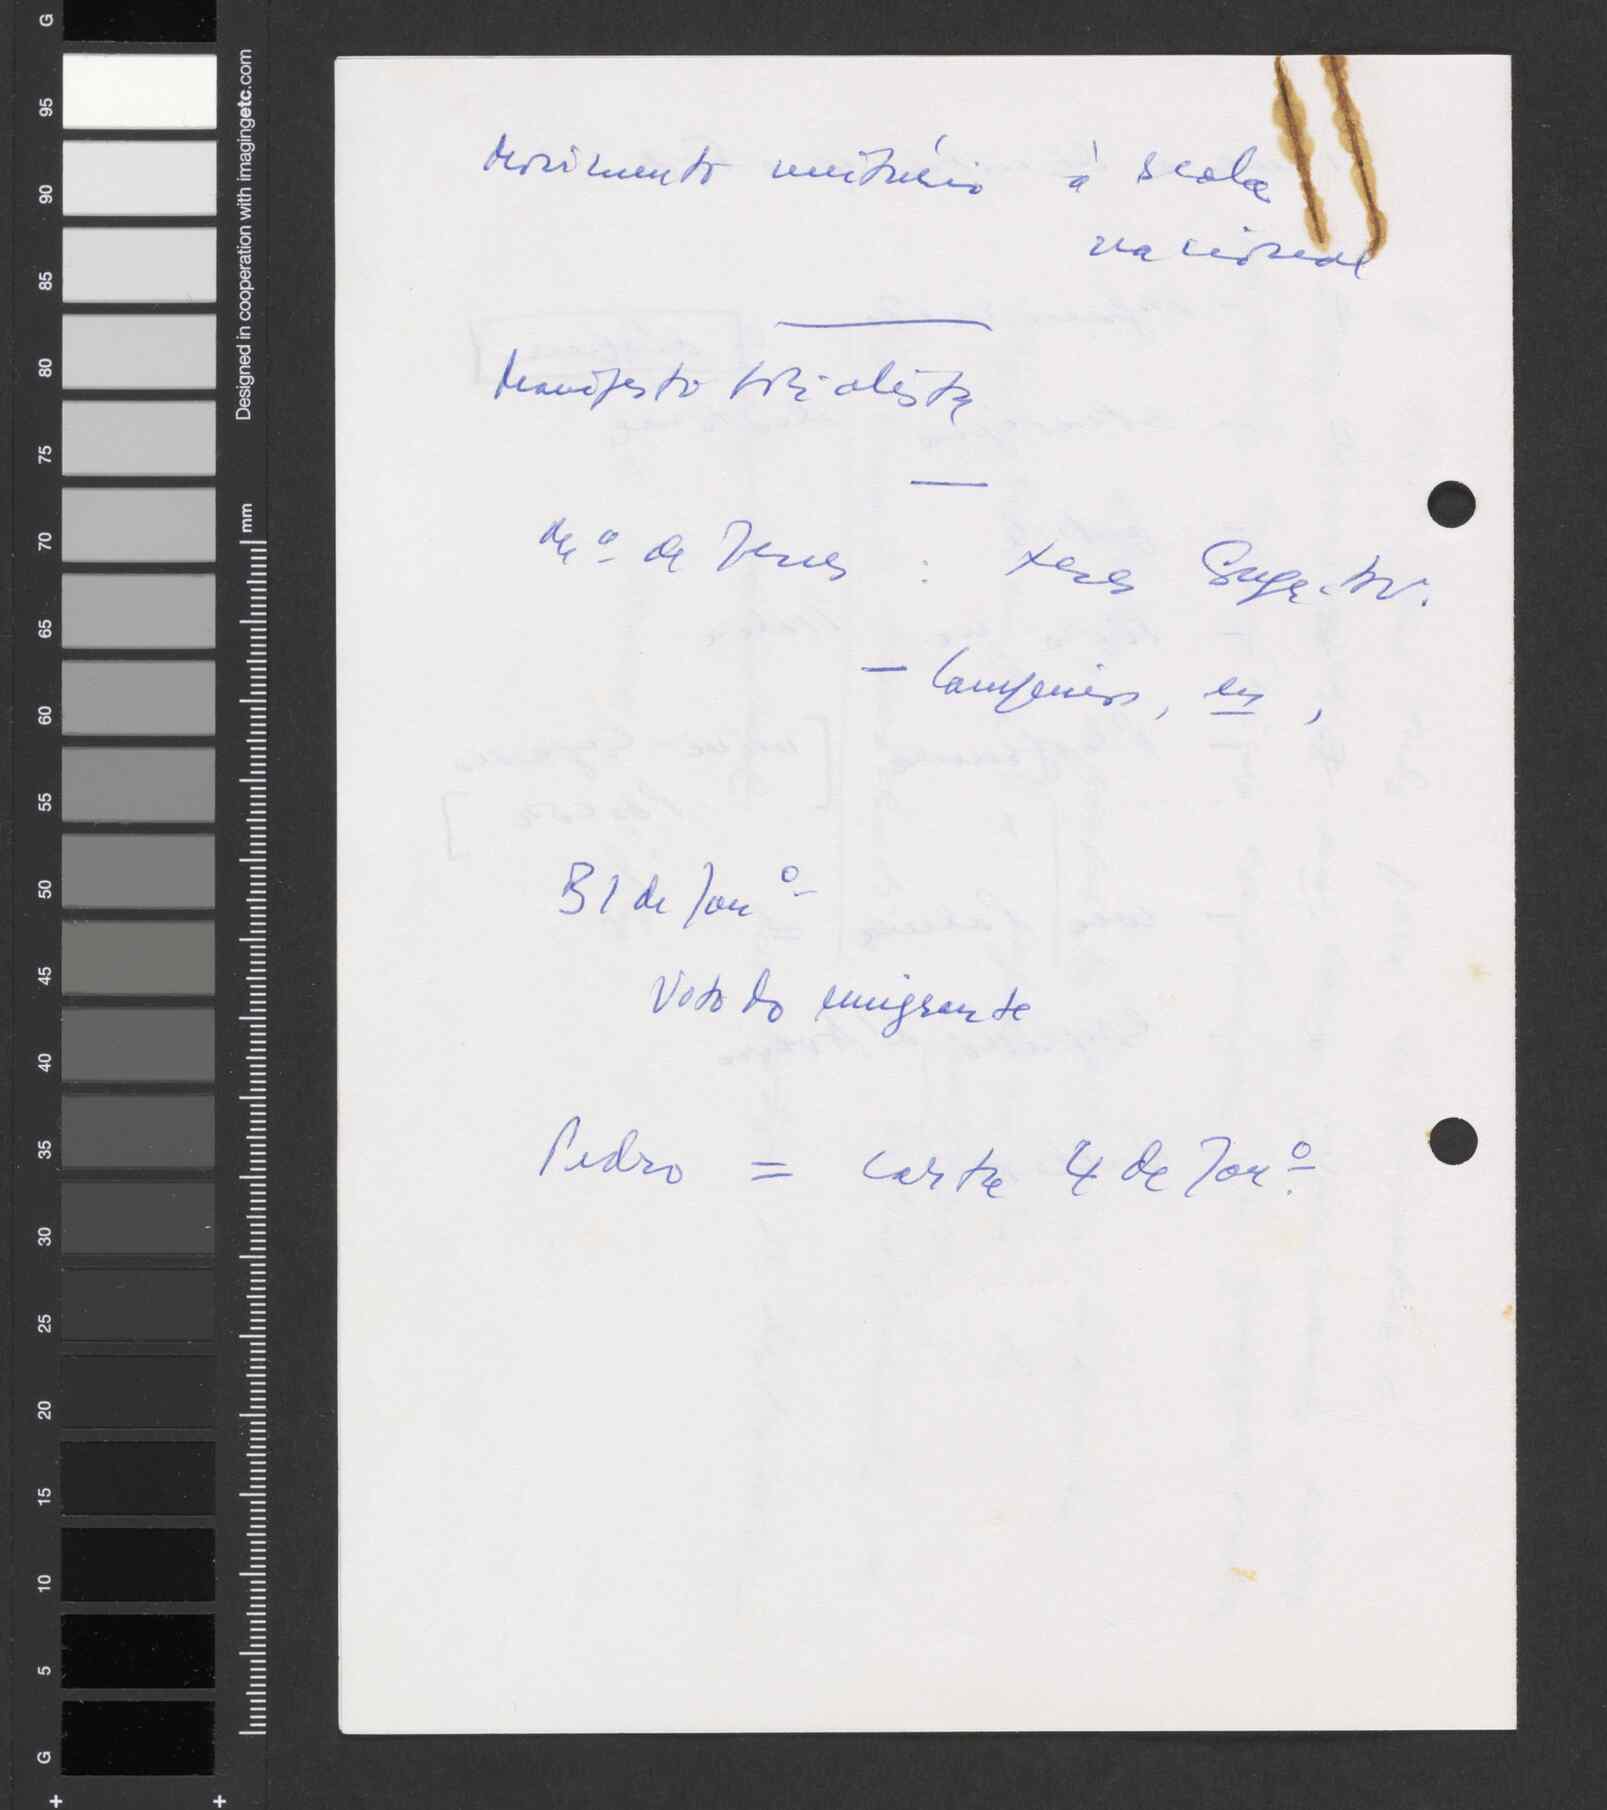 Movimento unitário à scala
nacional
Manifesto socialista
Mº de
— Campanha, em,
31 de Janº
Voto do emigrante
Pedro = carta 4 de Janº
Designed in cooperation with imagingetc.com
mm
G
95
90
85
80
75
70
65
60
55
50
45
40
35
30
25
20
15
10
5
G